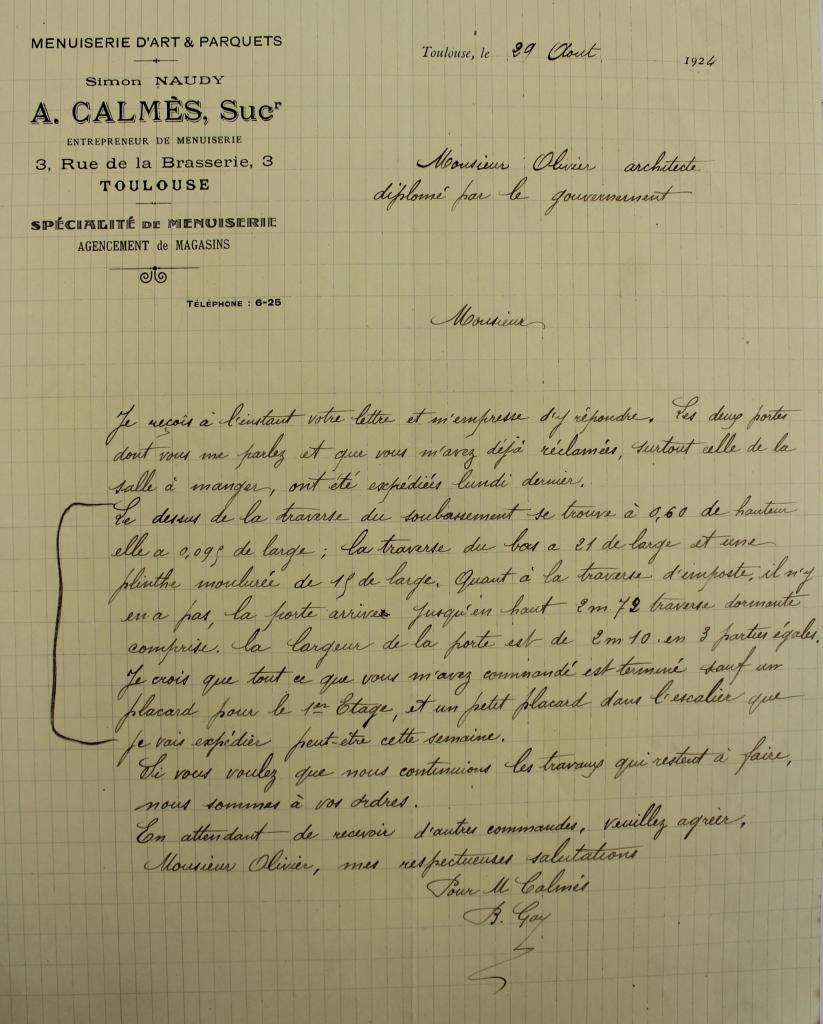 MENUISERIE D'ART & PARQUETS
Simon NAUDY
A. CALMÈS, Sucr
ENTREPRENEUR DE MENUISERIE
3, Rue de la Brasserie, 3
TOULOUSE
SPÉCIALITÉ DE MENUISERIE
AGENCEMENT de MAGASINS
TÉLÉPHONE : 6-25
Toulouse, le 29 Aout 1924
Monsieur Olivier architecte
diplomé par le gouvernement
Monsieur
Je reçois à l'instant votre lettre et m'empresse d'y répondre. Les deux portes
dont vous me parlez et que vous m'avez déjà réclamées, surtout celle de la
salle à manger, ont été expédiées lundi dernier.
Le dessus de la traverse du soubassement se trouve à 0,60 de hauteur
elle a 0,095 de large ; la traverse du bas a 21 de large et une
plinthe moulurée de 15 de large. Quant à la traverse d'imposte, il n'y
en a pas, la porte arrive jusqu'en haut 2m72 traverse dormante
comprise. La largeur de la porte est de 2m10 en 3 parties égales.
Je crois que tout ce que vous m'avez commandé est terminé sauf un
placard pour le 1er Etage, et un petit placard dans l'escalier que
je vais expédier peut-être cette semaine.
Si vous voulez que nous continuions les travaux qui restent à faire,
nous sommes à vos ordres.
En attendant de recevoir d'autres commandes, veuillez agréer,
Monsieur Olivier, mes respectueuses salutations
Pour M Calmés
B. Gay